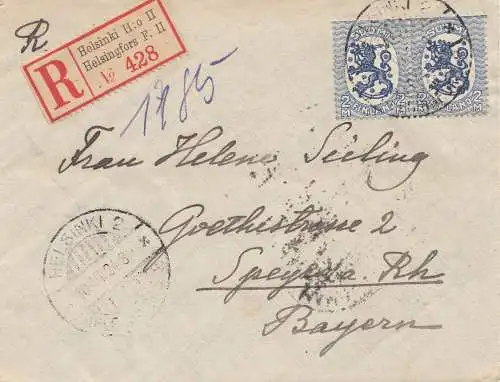 R.
R
Helsinki H:o II
Helsingfors F. II
No 428
1785
SUOMI SUOMI
2 M 2 M 2 M
FINLAND FINLAND
Frau Helene Seiling
Goethestrasse 2
Speyer a. Rh
Bayern
HELSINKI 2